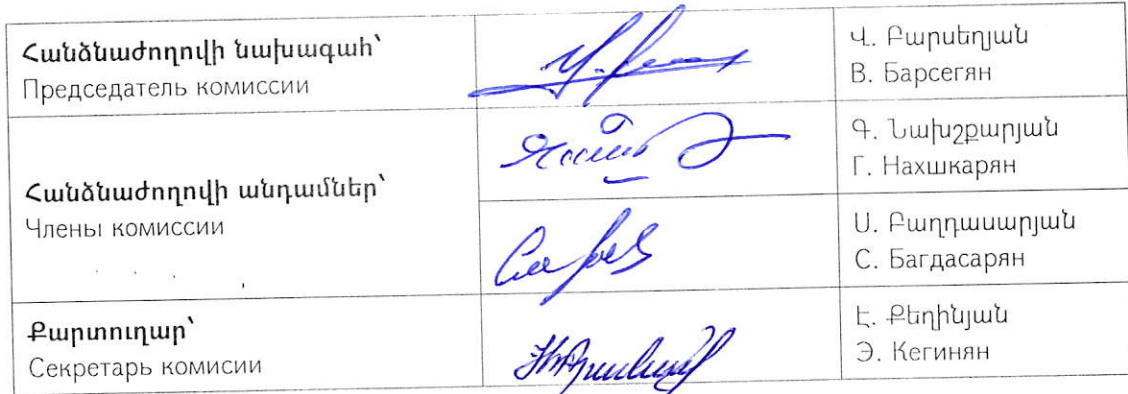 Հանձնաժողովի նախագահ՝
Председатель комиссии
Վ. Բարսեղյան
В. Барсегян
Հանձնաժողովի անդամներ՝
Члены комиссии
Գ. Նախշքարյան
Г. Нахшкарян
Ս. Բաղդասարյան
С. Багдасарян
Քարտուղար՝
Секретарь комисии
Է. Քեղինյան
Э. Кегинян